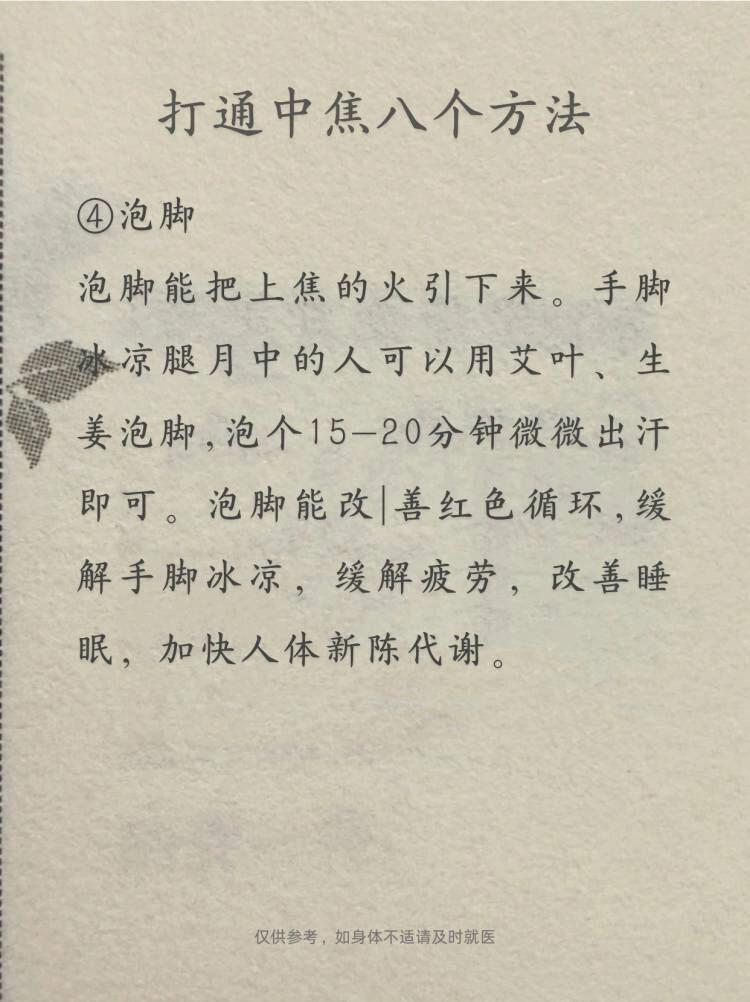 打通中焦八个方法
④泡脚
泡脚能把上焦的火引下来。手脚
冰凉腿月中的人可以用艾叶、生
姜泡脚,泡个15—20分钟微微出汗
即可。泡脚能改|善红色循环,缓
解手脚冰凉，缓解疲劳，改善睡
眠，加快人体新陈代谢。
仅供参考，如身体不适请及时就医